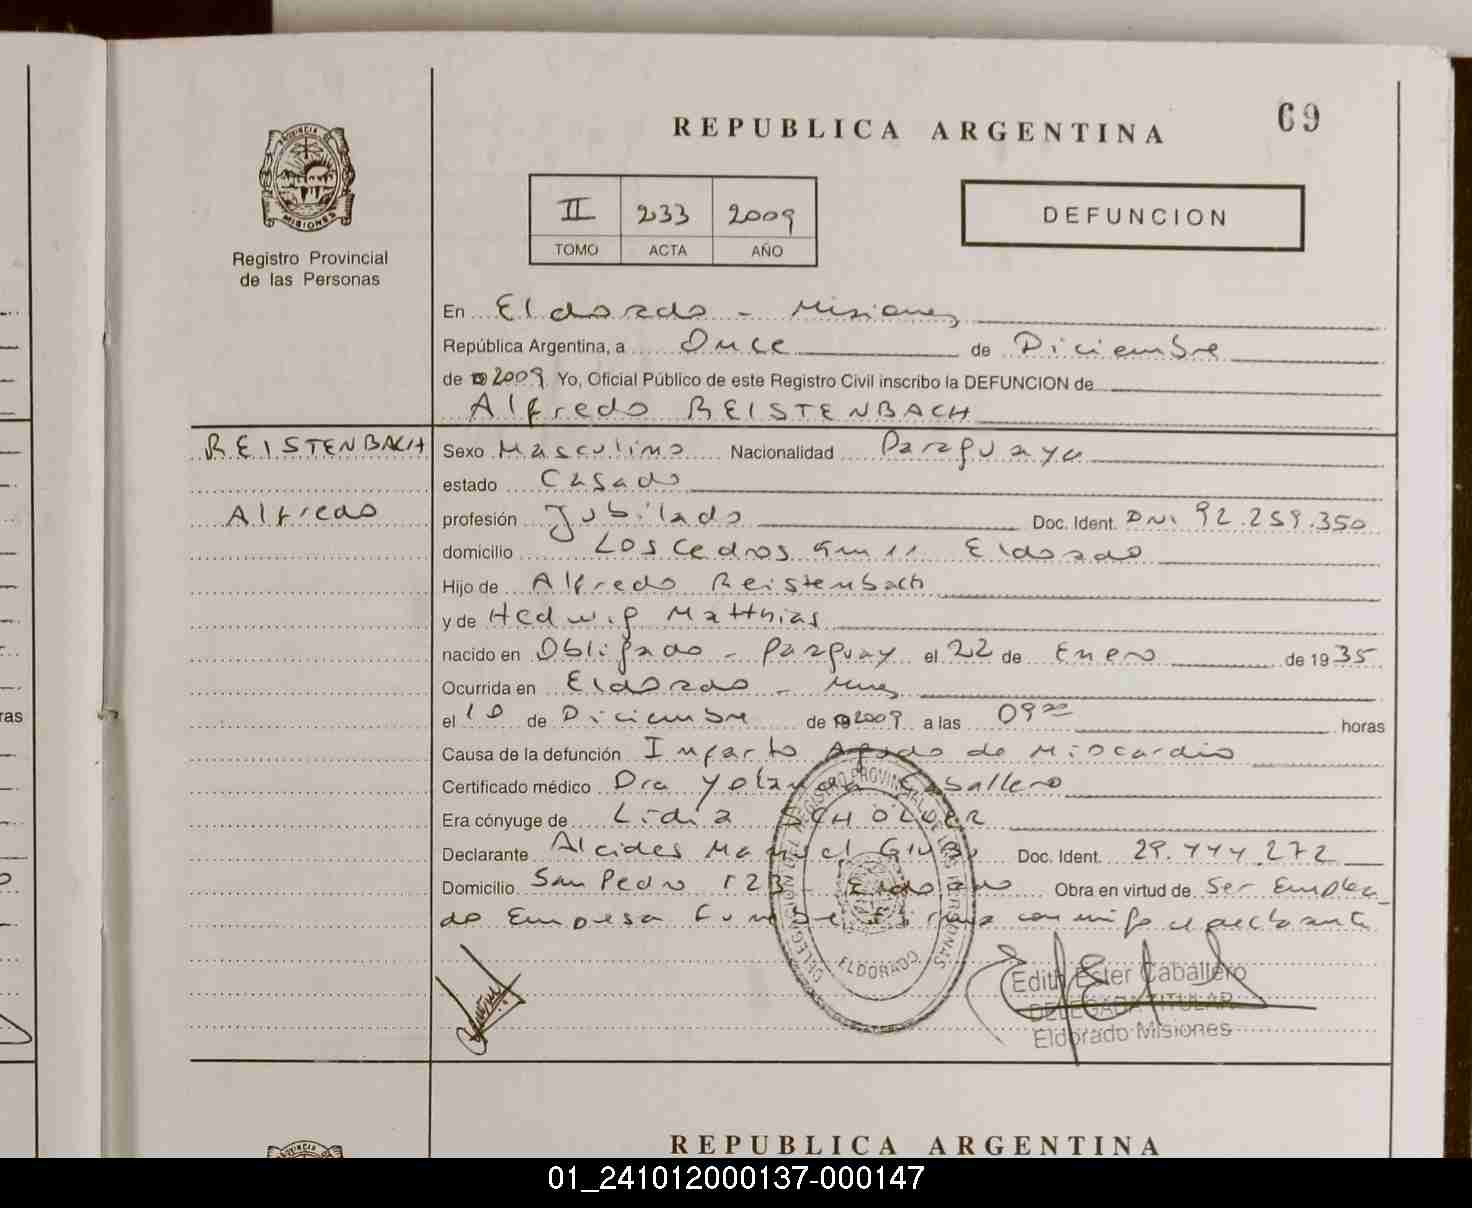 69
REPUBLICA ARGENTINA
PROVINCIA DE
MISIONES
Registro Provincial
de las Personas
II 233 2009
TOMO ACTA AÑO
DEFUNCION
En Eldorado - Misiones
República Argentina, a Once de Diciembre
de 2009 Yo, Oficial Público de este Registro Civil inscribo la DEFUNCION de
Alfredo REISTENBACH
REISTENBACH
Alfredo
Sexo Masculino Nacionalidad Paraguaya
estado Casado
profesión Jubilado Doc. Ident. DNI 92.259.350
domicilio Los Cedros Km 11 Eldorado
Hijo de Alfredo Reistenbach
y de Hedwig Matthias
nacido en Obligado - Paraguay el 22 de Enero de 1935
Ocurrida en Eldorado - Mnes
el 10 de Diciembre de 2009 a las 09 00 horas
Causa de la defunción Infarto Agudo de Miocardio
Certificado médico Dra Yolanda Caballero
Era cónyuge de Lidia SCHÖLDER
Declarante Alcides Manuel Doc. Ident. 29.444.272
Domicilio San Pedro 123 - Eldorado Obra en virtud de Ser Emplea-
do Empresa Funebre Firma conmigo el declarante
DELEGACION DEL REGISTRO PROVINCIAL DE LAS PERSONAS
ELDORADO
Edith Ester Caballero
DELEGADA TITULAR
Eldorado Misiones
REPUBLICA ARGENTINA
ras
01_241012000137-000147